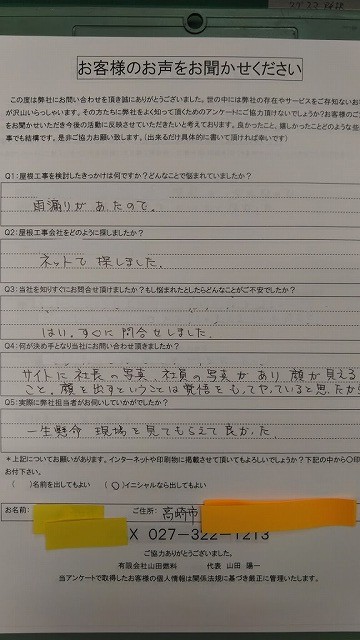 お客様のお声をお聞かせください
この度は弊社にお問い合わせを頂き誠にありがとうございました。世の中には弊社の存在やサービスをご存知ないお
が沢山いらっしゃいます。その方たちに弊社をよく知って頂くためのアンケートにご協力頂けないでしょうか?お客様のご
をお聞かせいただき今後の活動に反映させていただきたいと考えております。良かったこと、嬉しかったことどのような些
事でも結構です。是非ご協力お願い致します。(出来るだけ具体的に書いて頂ければ幸いです)
Q1:屋根工事を検討したきっかけは何ですか?どんなことで悩まれていましたか?
雨漏りがあたので。
Q2:屋根工事会社をどのように探しましたか?
ネットで探しました。
Q3:当社を知りすぐにお問合せ頂けましたか?もし悩まれたとしたらどんなことがご不安でしたか?
はい。すぐに問合せしました。
Q4:何が決め手となり当社にお問い合わせ頂きましたか?
サイトに社長の写真、社員の写真があり顔が見える
こと。顔を出すということは覚悟をもってやっていると思たから
Q5:実際に弊社担当者がお伺いしていかがでしたか?
一生懸命現場を見てもらえて良かった。
*上記についてお願いがあります。インターネットや印刷物に掲載させて頂いてもよろしいでしょうか?下記の中から〇印
お付下さい。
( )名前を出してもよい (〇)イニシャルなら出してもよい
お名前: ご住所: 高崎市
X 027-322-1213
ご協力ありがとうございました。
有限会社山田燃料 代表 山田 陽一
当アンケートで取得したお客様の個人情報は関係法規に基づき厳正に管理いたします。